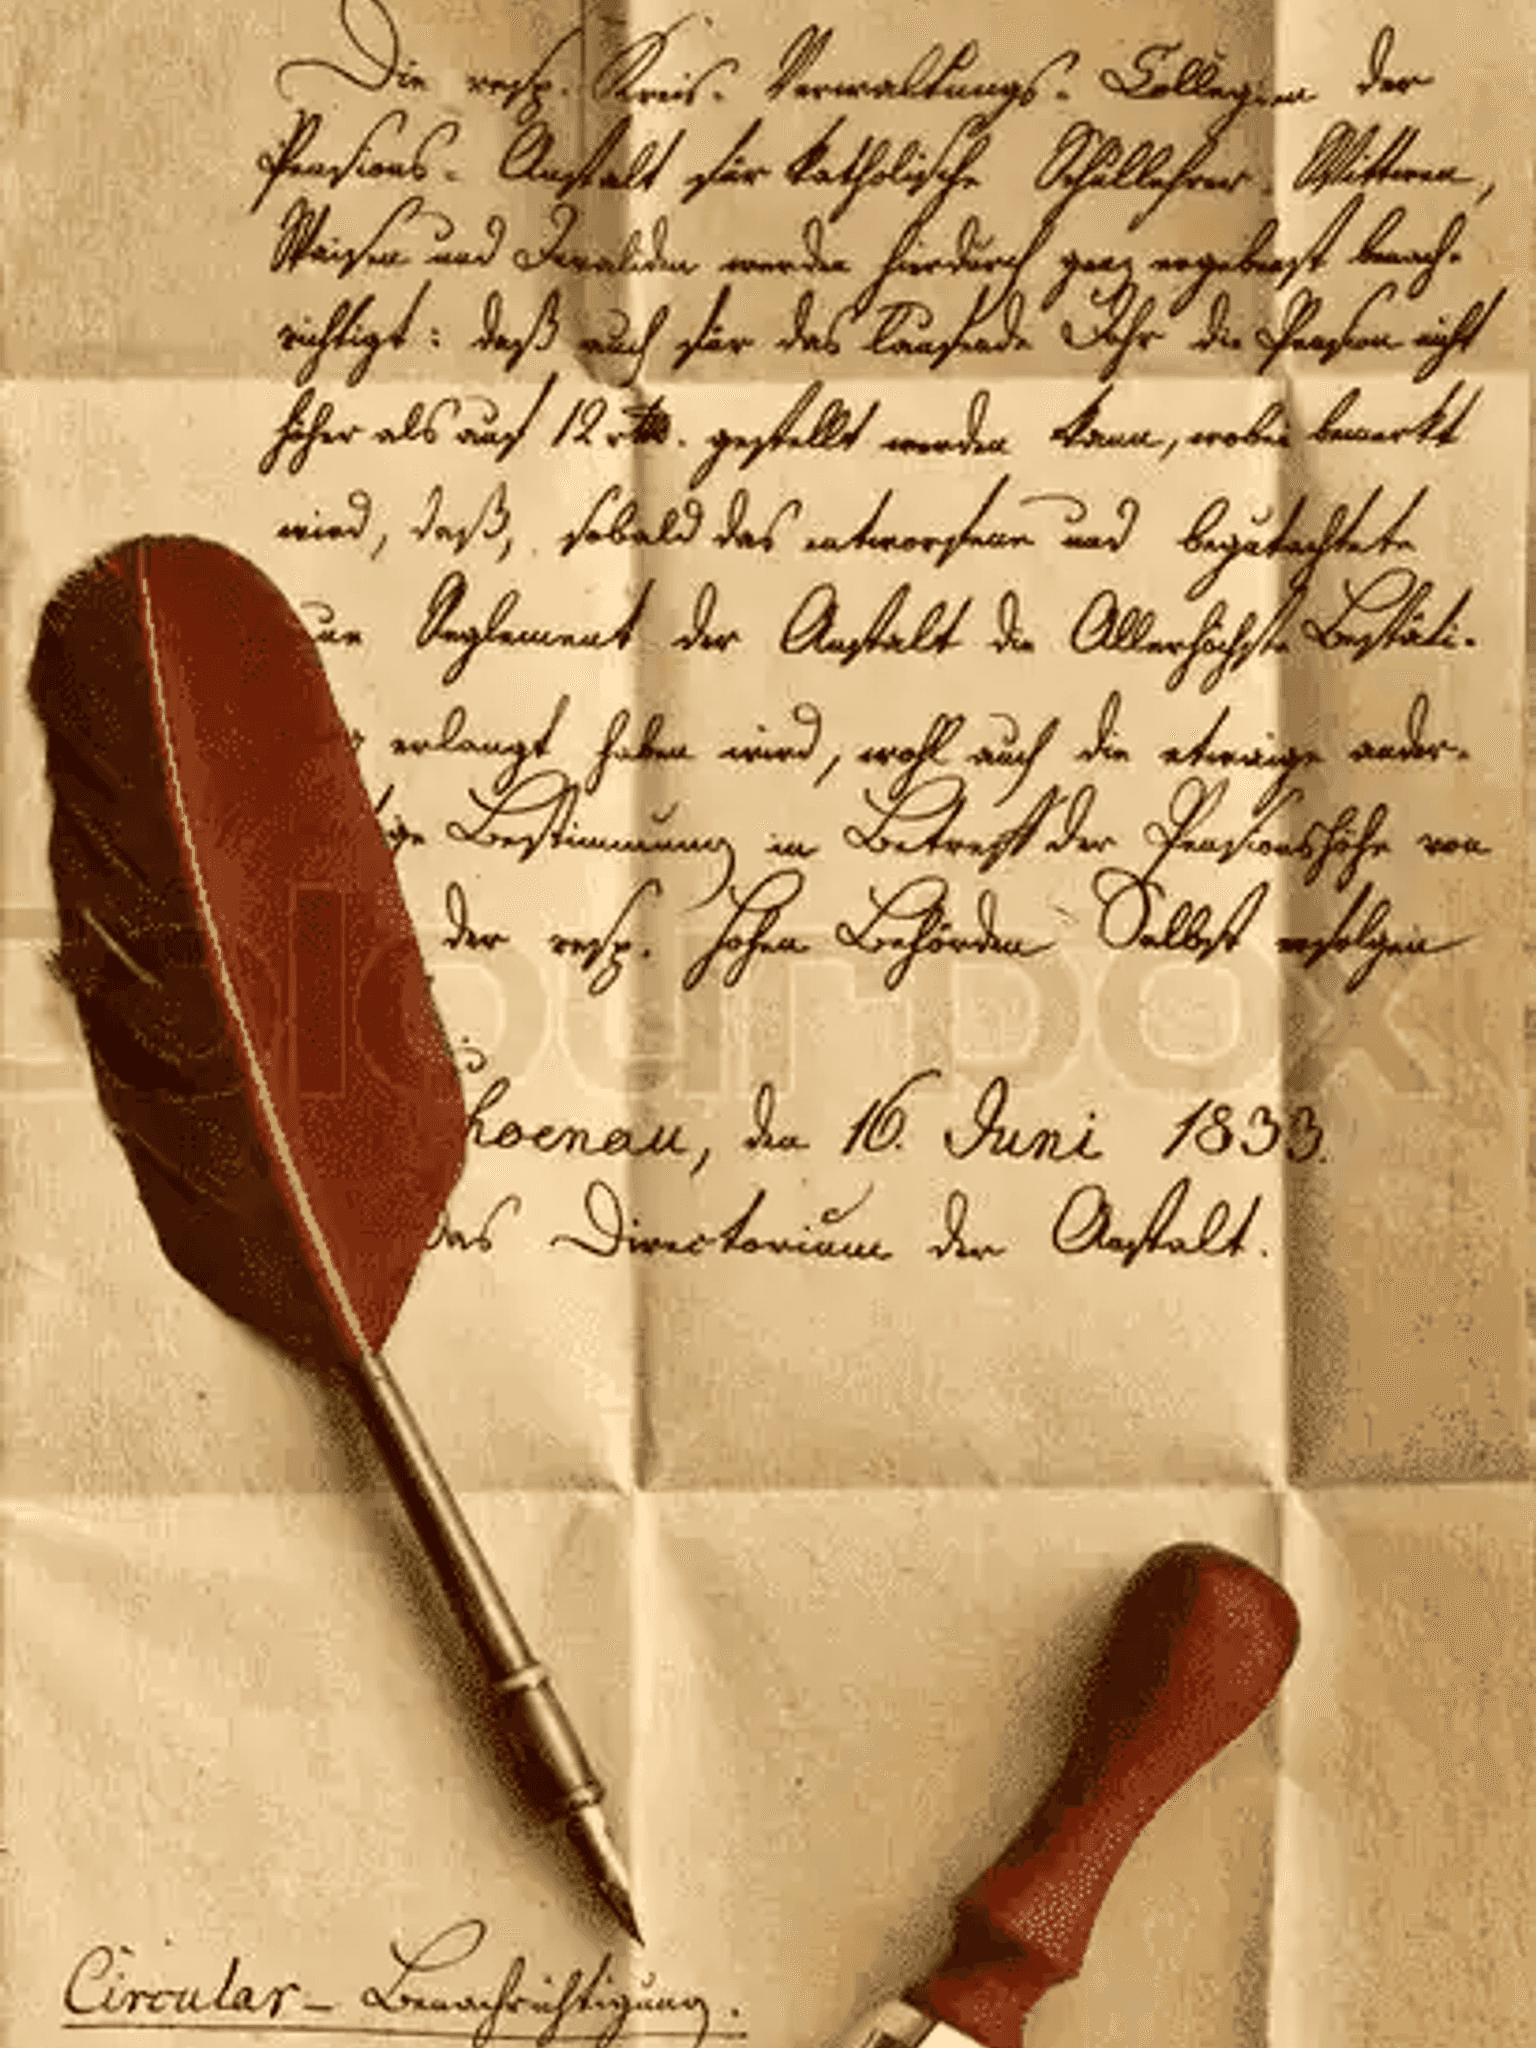 Die resp. Kreis- Verwaltungs- Collegien der
Pensions- Anstalt für katholische Schullehrer- Wittwen,
Waisen und Invaliden werden hierdurch ganz ergebenst benach-
richtigt: daß auch für das laufende Jahr die Pension nicht
höher als auf 12 rtlr. gestellt werden kann, wobei bemerkt
wird, daß, sobald das entworfene und begutachtete
Reglement der Anstalt die Allerhöchste Bestäti-
erlangt haben wird, wohl auch die etwaige ander-
ige Bestimmung in Betreff der Pensionshöhe von
der resp. hohen Behörden Selbst erfolgen
hoenau, den 16. Juni 1833.
das Directorium der Anstalt.
Circular- Benachrichtigung.
colourbox